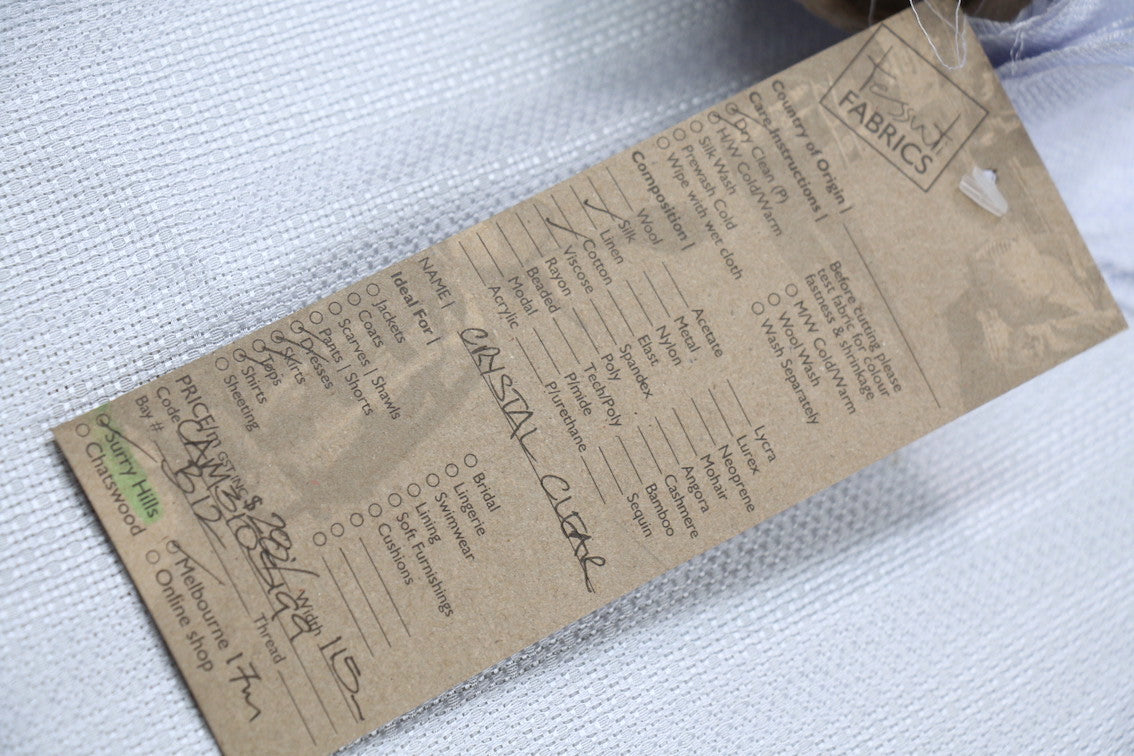 Tessuti
FABRICS
Country of Origin |
Care Instructions |
Dry Clean (P)
H/W Cold/Warm
Silk Wash
Prewash Cold
Wipe with wet cloth
Before cutting please
test fabric for colour
fastness & shrinkage
M/W Cold/Warm
Wool Wash
Wash Separately
Composition |
Wool
Silk
Linen
Cotton
Viscose
Rayon
Beaded
Modal
Acrylic
Acetate
Metal
Nylon
Elast
Spandex
Poly
Tech/Poly
P/mide
P/urethane
Lycra
Lurex
Neoprene
Mohair
Angora
Cashmere
Bamboo
Sequin
NAME | CRYSTAL CLEAR
Ideal For |
Jackets
Coats
Scarves | Shawls
Pants | Shorts
Dresses
Skirts
Tops
Shirts
Sheeting
Bridal
Lingerie
Swimwear
Lining
Soft Furnishings
Cushions
PRICE/m GST INC $ Width 115
Code
Bay # B12 Thread
Surry Hills Melbourne 17m
Chatswood Online shop